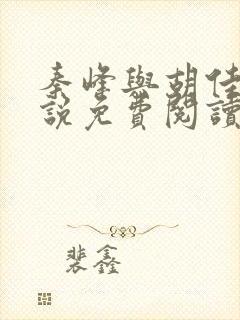 秦峰與胡佳
說免費閱讀
裴鑫